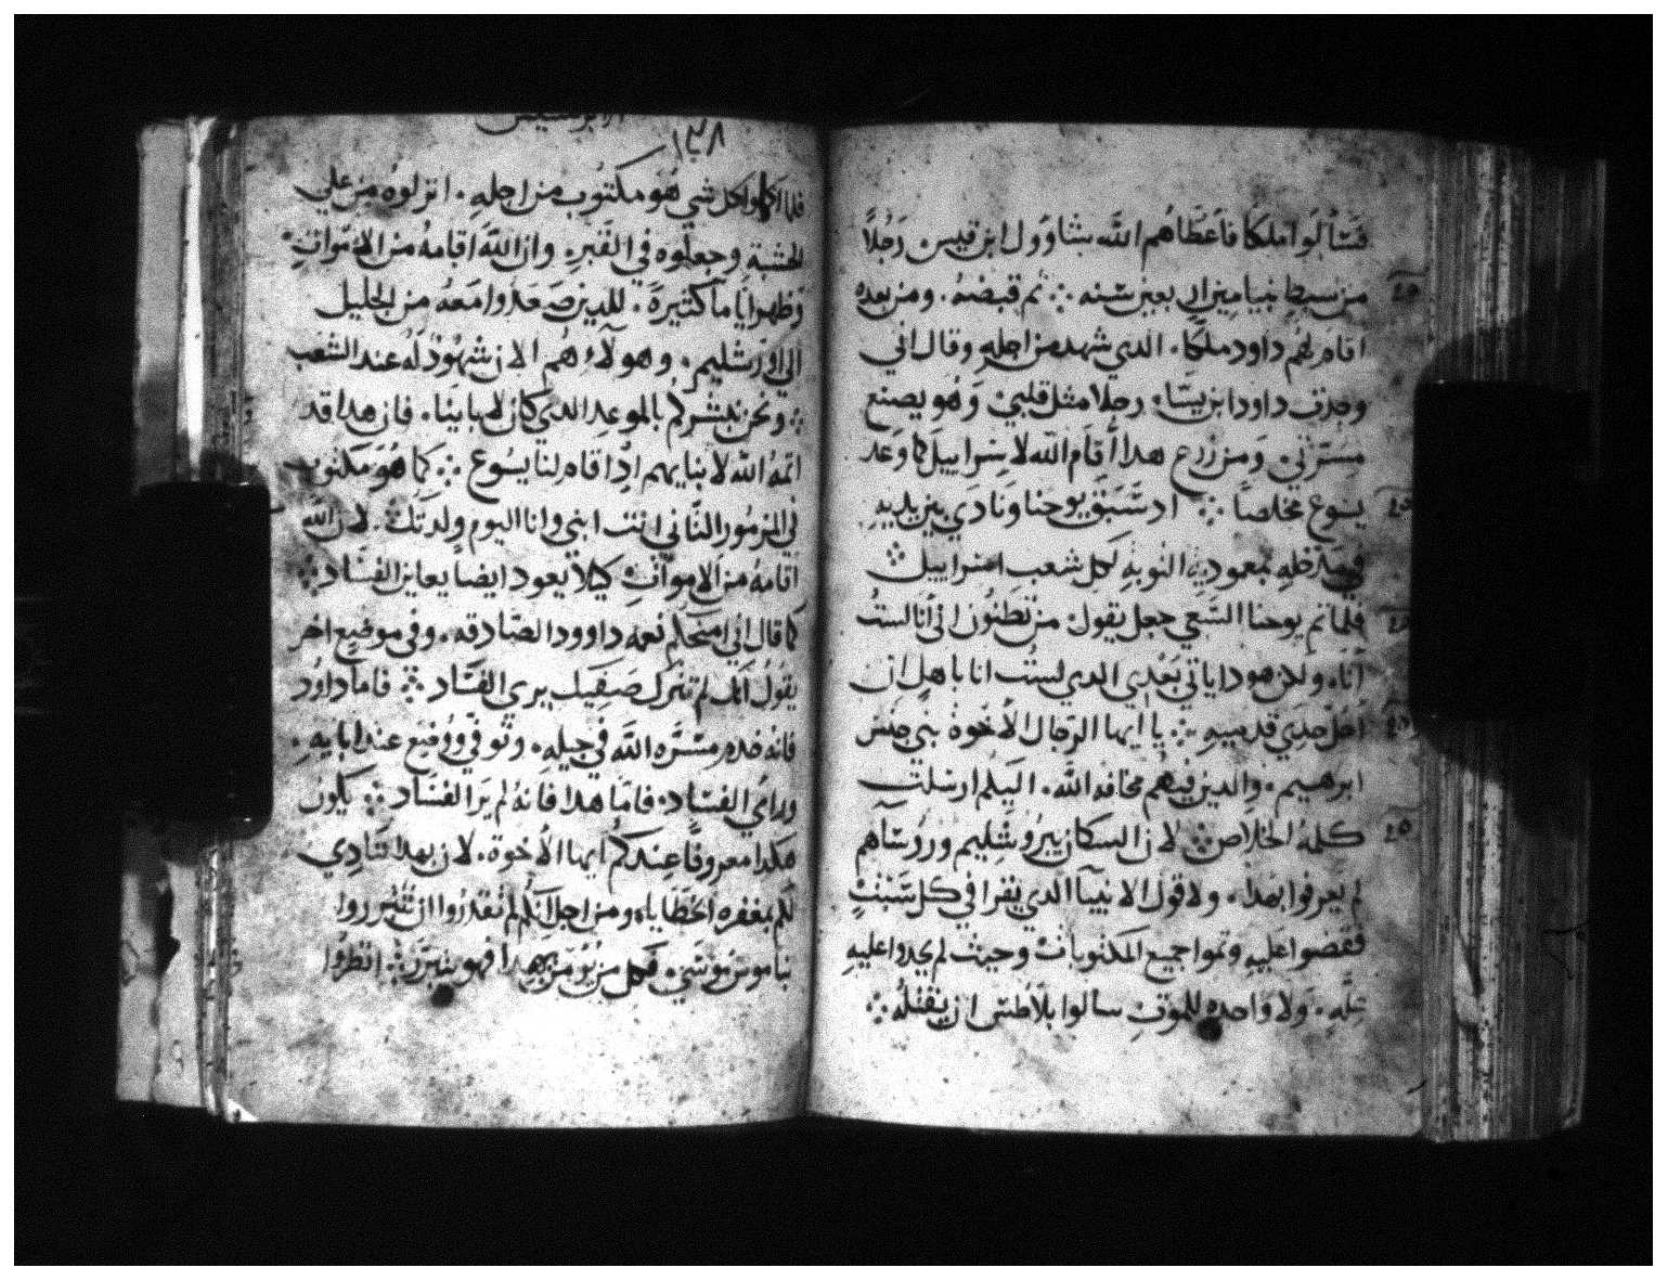 فسألوا ملكا فاعطاهم الله بشاوول ابن قيس. رجلاً
من سبط بنيامين اربعين سنه ثم قبضه. ومن بعده
اقام لهم داود ملكا. الدي شهد من اجله وقال اني
وجدت داود ابن يسا، رجلا مثل قلبي وهو يصنع
مسرتي ومن زرع هدا أقام الله لاسراييل كما وعد
يسوع مخلصاً اد سبق يوحنا ونادي بين يديه
مدخله بمعمودية التوبه لكل شعب اسراييل
فلما تم يوحنا السعي جعل يقول من تظنون اني أنا لست
أنا، ولكن هودا ياتي بعدي الدي لست انا باهل ان
احل حدي قدميه يا ايها الرجال الأخوة بني جنس
ابرهيم. والدين فيهم مخافه الله. اليكم ارسلت
كلمة الخلاص لان السكان بيروشليم وروساهم
لم يعرفوا بهدا. ولا قول الانبيا الدي يقرا في كل سبت
فقضوا عليه وتموا جميع المكتوبات وحيث لم يجدوا عليه
علّه. ولا واحده للموت سالوا بلاطس ان يقتله
١٣٨
الابركسيس
فلما اكملوا كل شي هو مكتوب من اجله. انزلوه من علي
الخشبة وجعلوه في القبر وان الله اقامه من الاموات
وظهر اياما كثيرة. للدين صعدوا معه من الجليل
الي اورشليم. وهولاء هم الان شهود له عند الشعب
ونحن نبشركم بالموعد الدي كان لابايناء فان هدا قد
اتمه الله لابنايهم اد اقام لنا يسوع كما هو مكتوب
في المزمور الثاني انت ابني وانا اليوم ولدتك لان الله
اقامه من الاموات كيلا يعود ايضا يعاين الفساد
كما قال اني امنحكم نعمه داوود الصادقه. وفي موضع اخر
يقول انك لم تترك صفيك يري الفساد فاما داود
فانه خدم مسره الله في جيله. وتوفي ووضع عند ابايه.
وراي الفساد. فاما هدا فانه لم ير الفساد يكون
هكدا معروفا عندكم ايها الأخوة. لان بهدا تنادي
لكم بمغفره الخطايا، ومن اجل انكم لم تقدروا ان تتبرروا
بناموس موسي. فكل من يومن بهدا فهو يتبرر انظروا